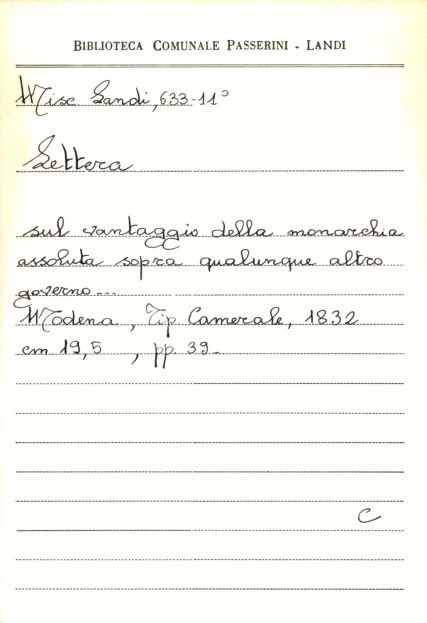 BIBLIOTECA COMUNALE PASSERINI - LANDI
Misc Landi, 633-11°
Lettera
sul vantaggio della monarchia
assoluta sopra qualunque altro
governo...
Modena, Tip Camerale, 1832
cm 19,5 , pp. 39-
C